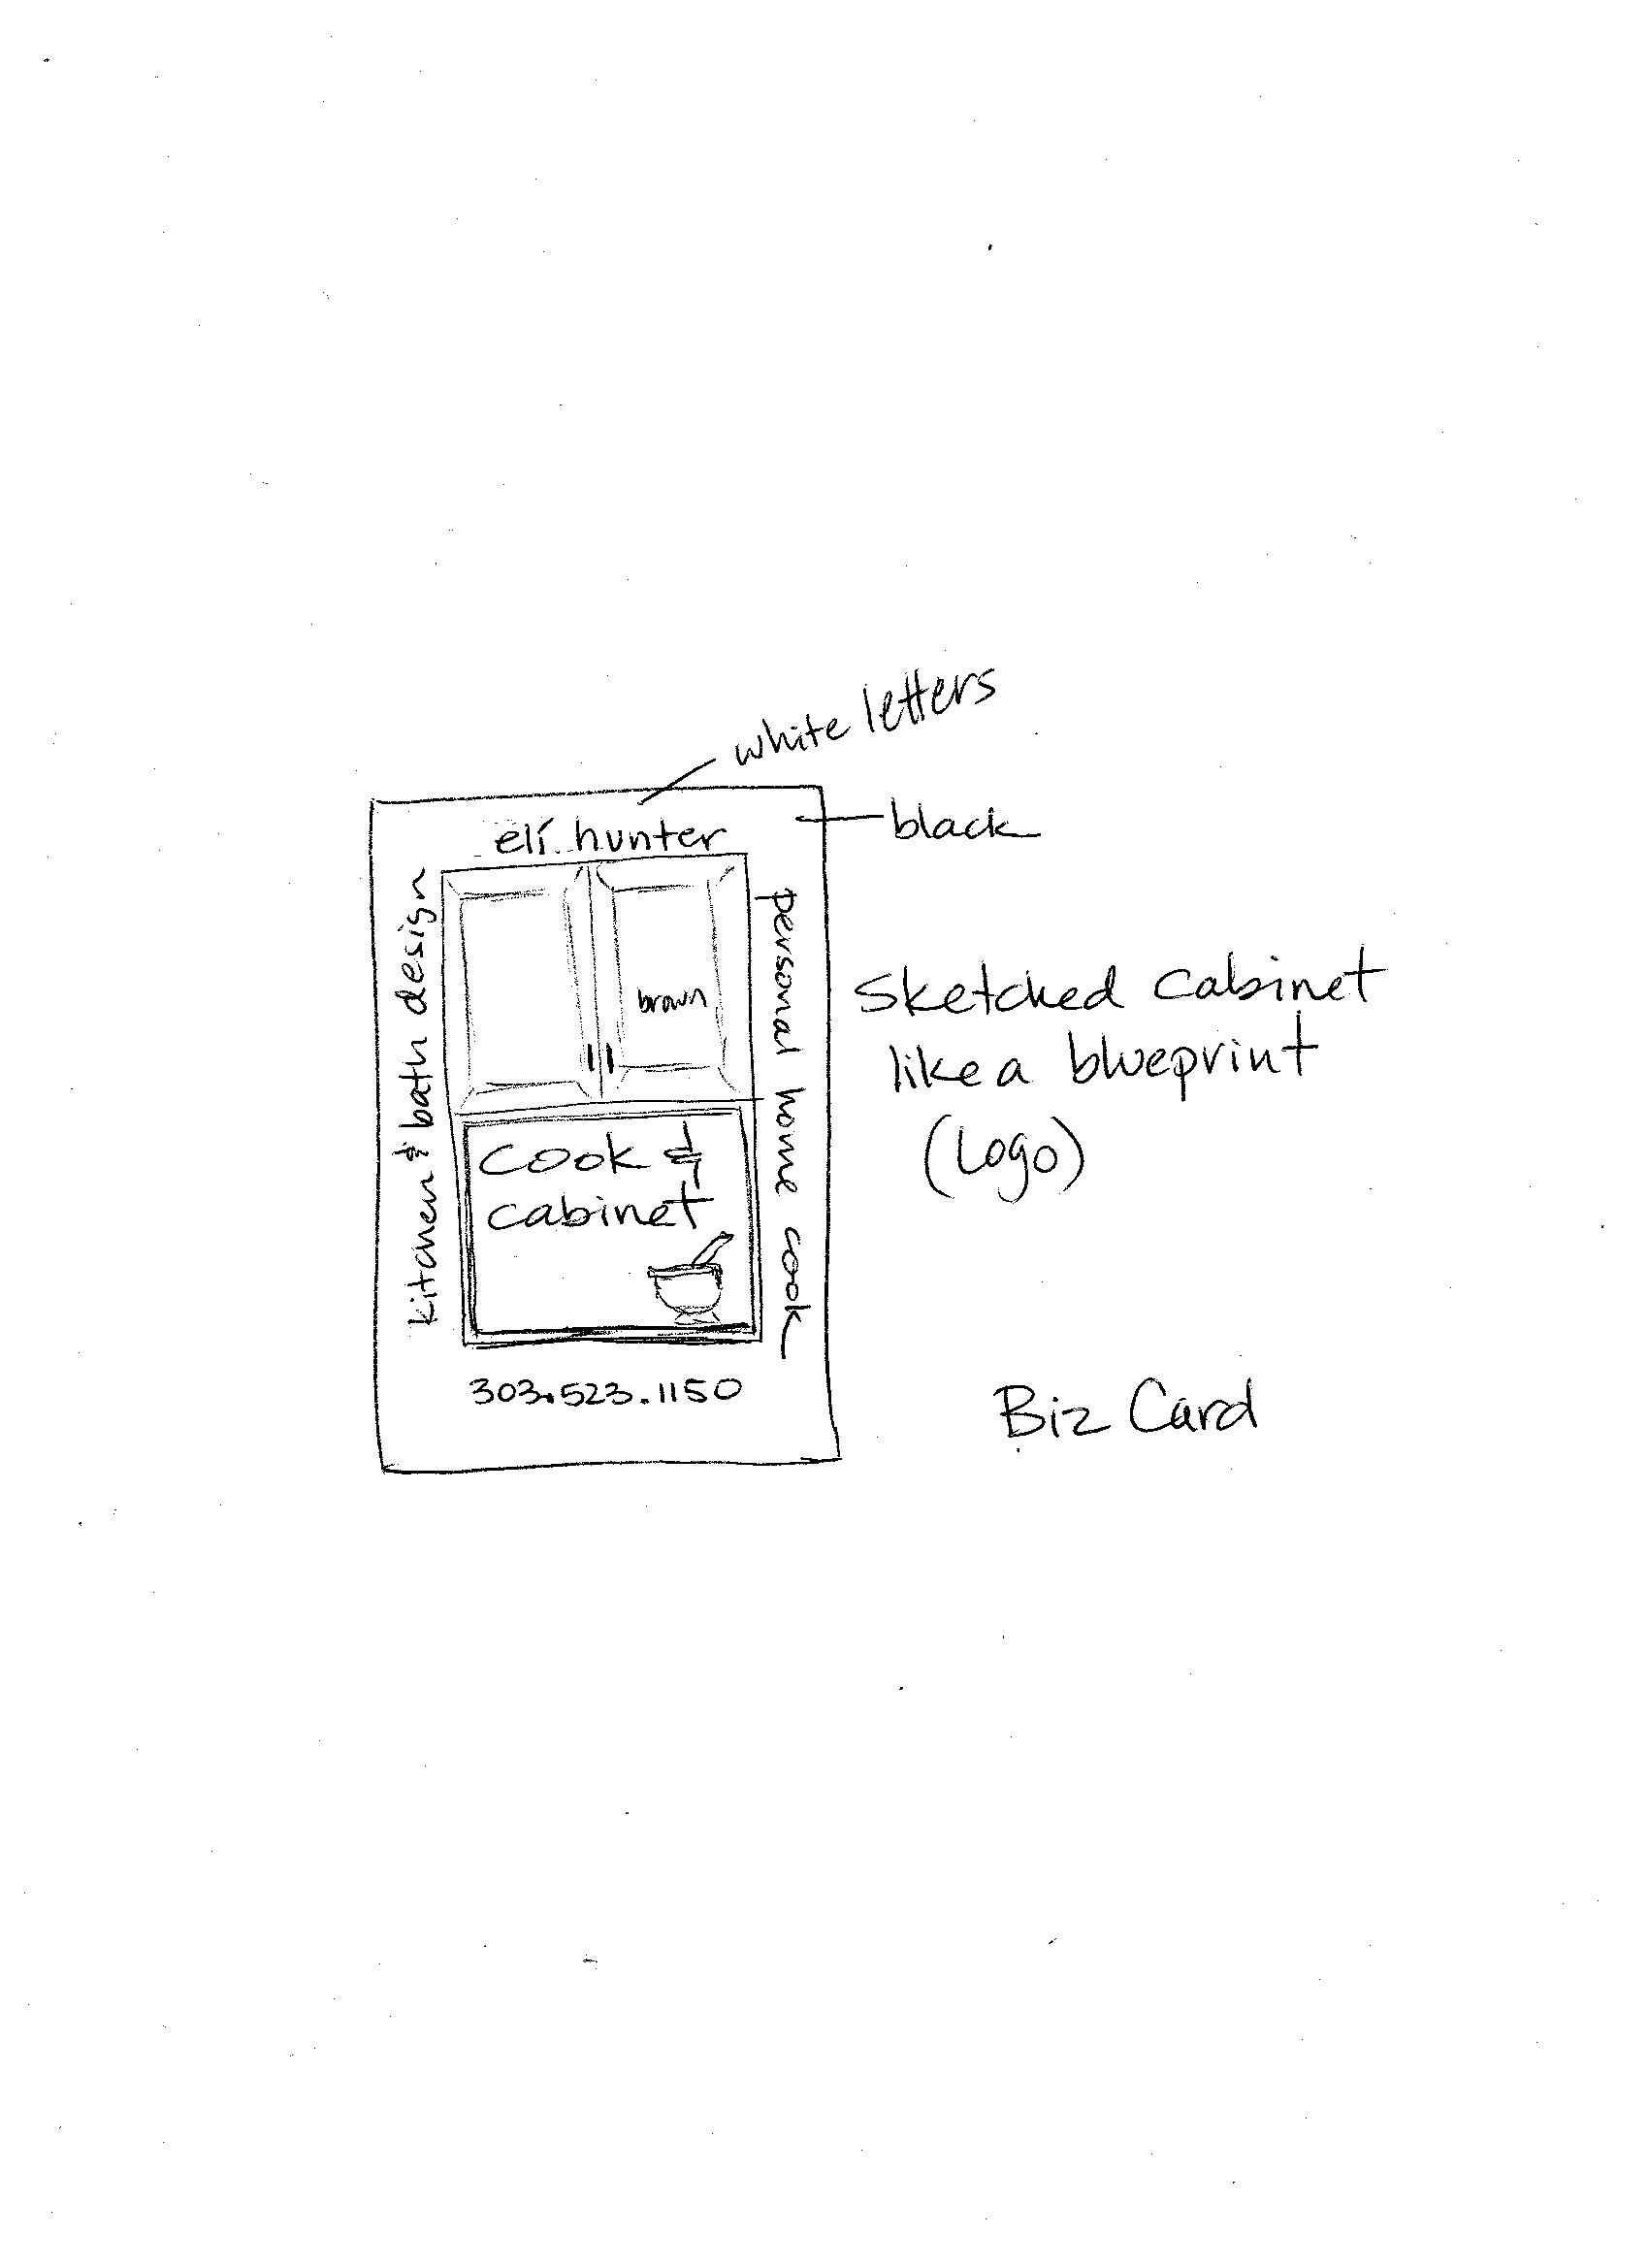 white letters
black
eli hunter
kitchen & bath design
personal home cook
brown
sketched cabinet
like a blueprint
(logo)
cook &
cabinet
303.523.1150
Biz Card